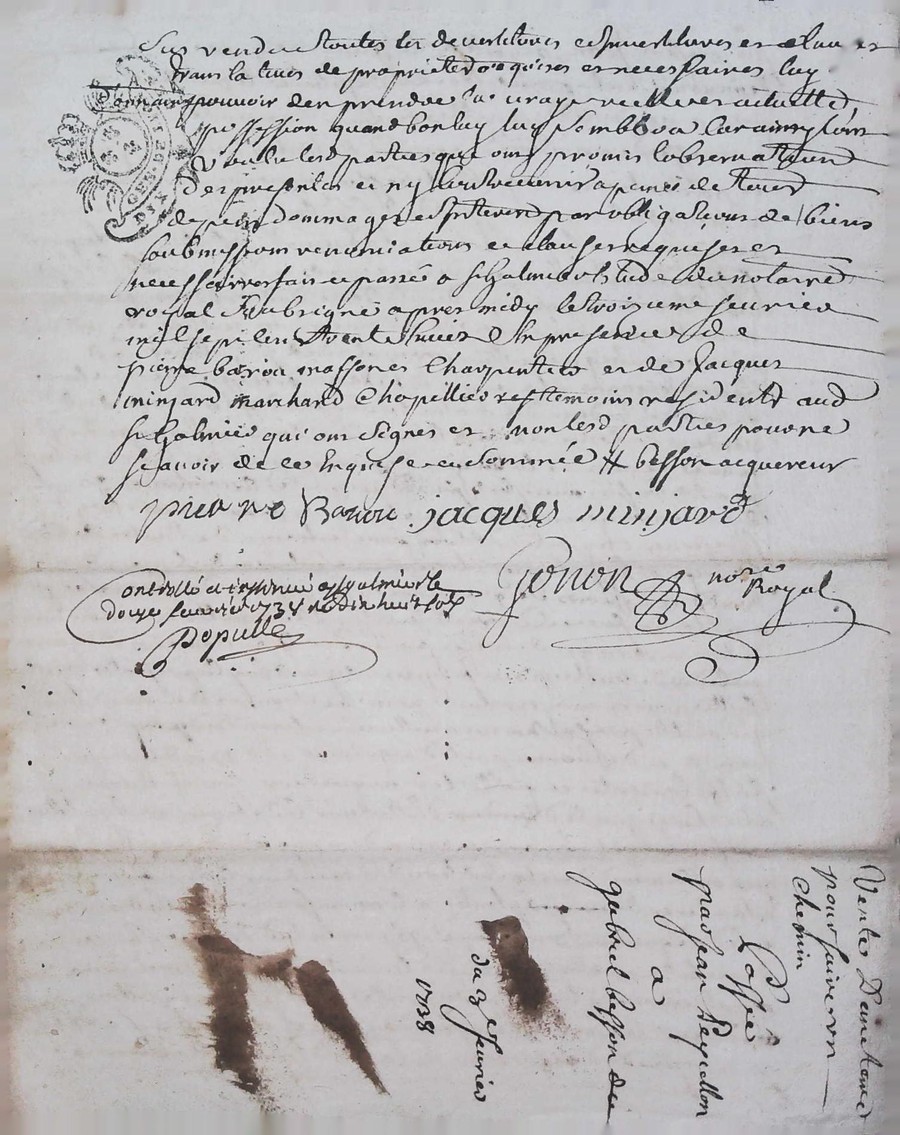 Sus vendu toutes les devestitures et investitures et
translatives de propriété requises et necessaires luy
donnant pouvoir den prendre la vraye reelle et actuelle
possession quand bon luy semblera car ainsy lont
voulu lesd parties que ont promis lobservation
des presentes et ny contrevenir a peine de tous
depens dommages et interets par obligations de biens
soubmissions renunciations et clauses requises et
necessaires fait et passé a st Galmier Estude du notaire
royal apres midy le troisieme fevrier
mil sept cents trente huict En presence de
pierre bariou charpentier et de Jacques
minjard marchand Chapellier temoins residents aud
st Galmier qui ont signes et non lesd parties pour ne
scavoir de ce Enquise et sommée # besson acquereur
pierre Bariou jacques minjard
Gonon nore Royal
Controllé et insinué a st galmier le
douze fevrier 1738 dix huit sols
Populle
Vente
pour faire un
chemin
Passée
par jean Peyrellon
a
gabriel besson du
du 3e fevrier
1738